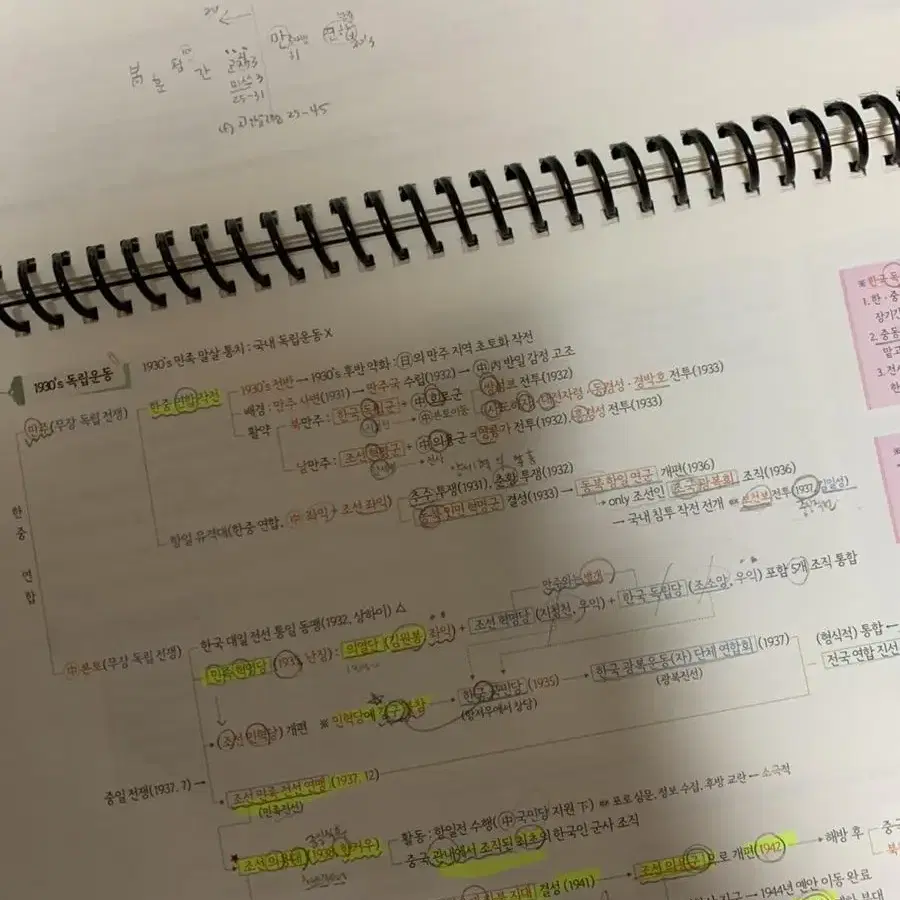 25-31
25-45
1930's 독립운동
1930's 민족 말살 통치 : 국내 독립운동 X
만주(무장 독립 전쟁)
한중 연합작전
1930's 전반 → 1930's 후반 약화 : 日의 만주 지역 초토화 작전
배경 : 만주 사변(1931) → 만주국 수립(1932) → 中內 반일 감정 고조
활약
북만주 : 한국 독립군 + 中 호로군
쌍성보 전투(1932)
사도하자·대전자령·동경성·경박호 전투(1933)
남만주 : 조선 혁명군 + 中 의용군 = 영릉가 전투(1932), 흥경성 전투(1933)
양세봉의 죽음
항일 유격대(한중 연합, 中 좌익 + 조선 좌익)
추수 투쟁(1931), 춘황 투쟁(1932)
동북 인민 혁명군 결성(1933) → 동북 항일 연군 개편(1936)
→ only 조선인 조국 광복회 조직(1936)
→ 국내 침투 작전 전개 보천보 전투(1937, 김일성)
한
중
연
합
中 본토(무장 독립 전쟁)
한국 대일 전선 통일 동맹(1932, 상하이) △
민족 혁명당 (1935, 난징) : 의열단 (김원봉, 좌익) + 조선 혁명당 (지청천, 우익) + 한국 독립당 (조소앙, 우익) 포함 5개 조직 통합
만주와는 별개
(조선 민혁당) 개편
※ 민혁당에 김구 불참
한국 국민당 (1935)
(항저우에서 창당)
한국 광복운동(자) 단체 연합회 (1937)
(광복진선)
(형식적) 통합 ←
전국 연합 진선
중일 전쟁(1937. 7) →
조선 민족 전선 연맹 (1937. 12)
(민족진선)
조선 의용대 (1938, 한커우)
활동 : 항일전 수행(中 국민당 지원 下) 포로 심문, 정보 수집, 후방 교란 ← 소극적
중국 관내에서 조직된 최초의 한국인 군사 조직
화북 지대 결성 (1941)
조선 의용군으로 개편(1942)
→ 해방 후
→ 1944년 옌안 이동 완료
※ 한국 독
1. 한·중
장기간
2. 중동
3. 전시
한